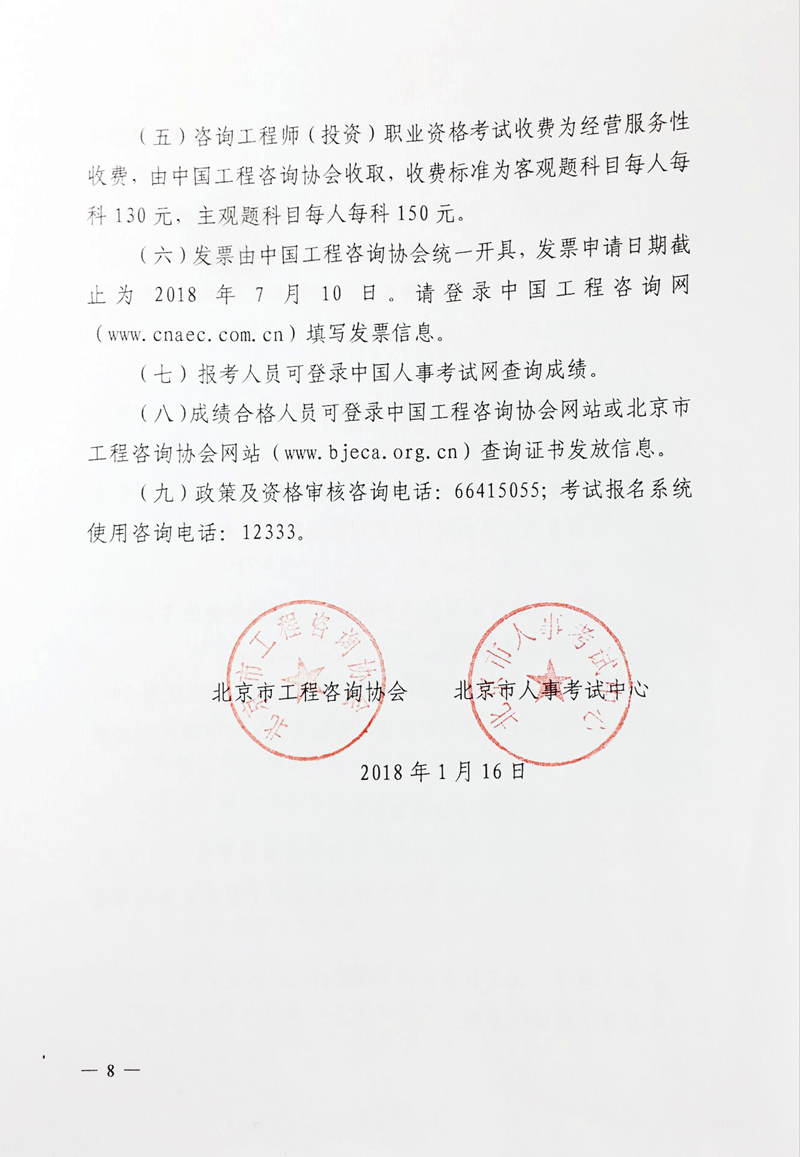 （五）咨询工程师（投资）职业资格考试收费为经营服务性
收费，由中国工程咨询协会收取，收费标准为客观题科目每人每
科 130 元，主观题科目每人每科 150 元。
（六）发票由中国工程咨询协会统一开具，发票申请日期截
止为 2018 年 7 月 10 日。请登录中国工程咨询网
（www.cnaec.com.cn）填写发票信息。
（七）报考人员可登录中国人事考试网查询成绩。
（八）成绩合格人员可登录中国工程咨询协会网站或北京市
工程咨询协会网站（www.bjeca.org.cn）查询证书发放信息。
（九）政策及资格审核咨询电话：66415055；考试报名系统
使用咨询电话：12333。
北京市工程咨询协会
北京市人事考试中心
北京市工程咨询协会 北京市人事考试中心
2018 年 1 月 16 日
— 8 —